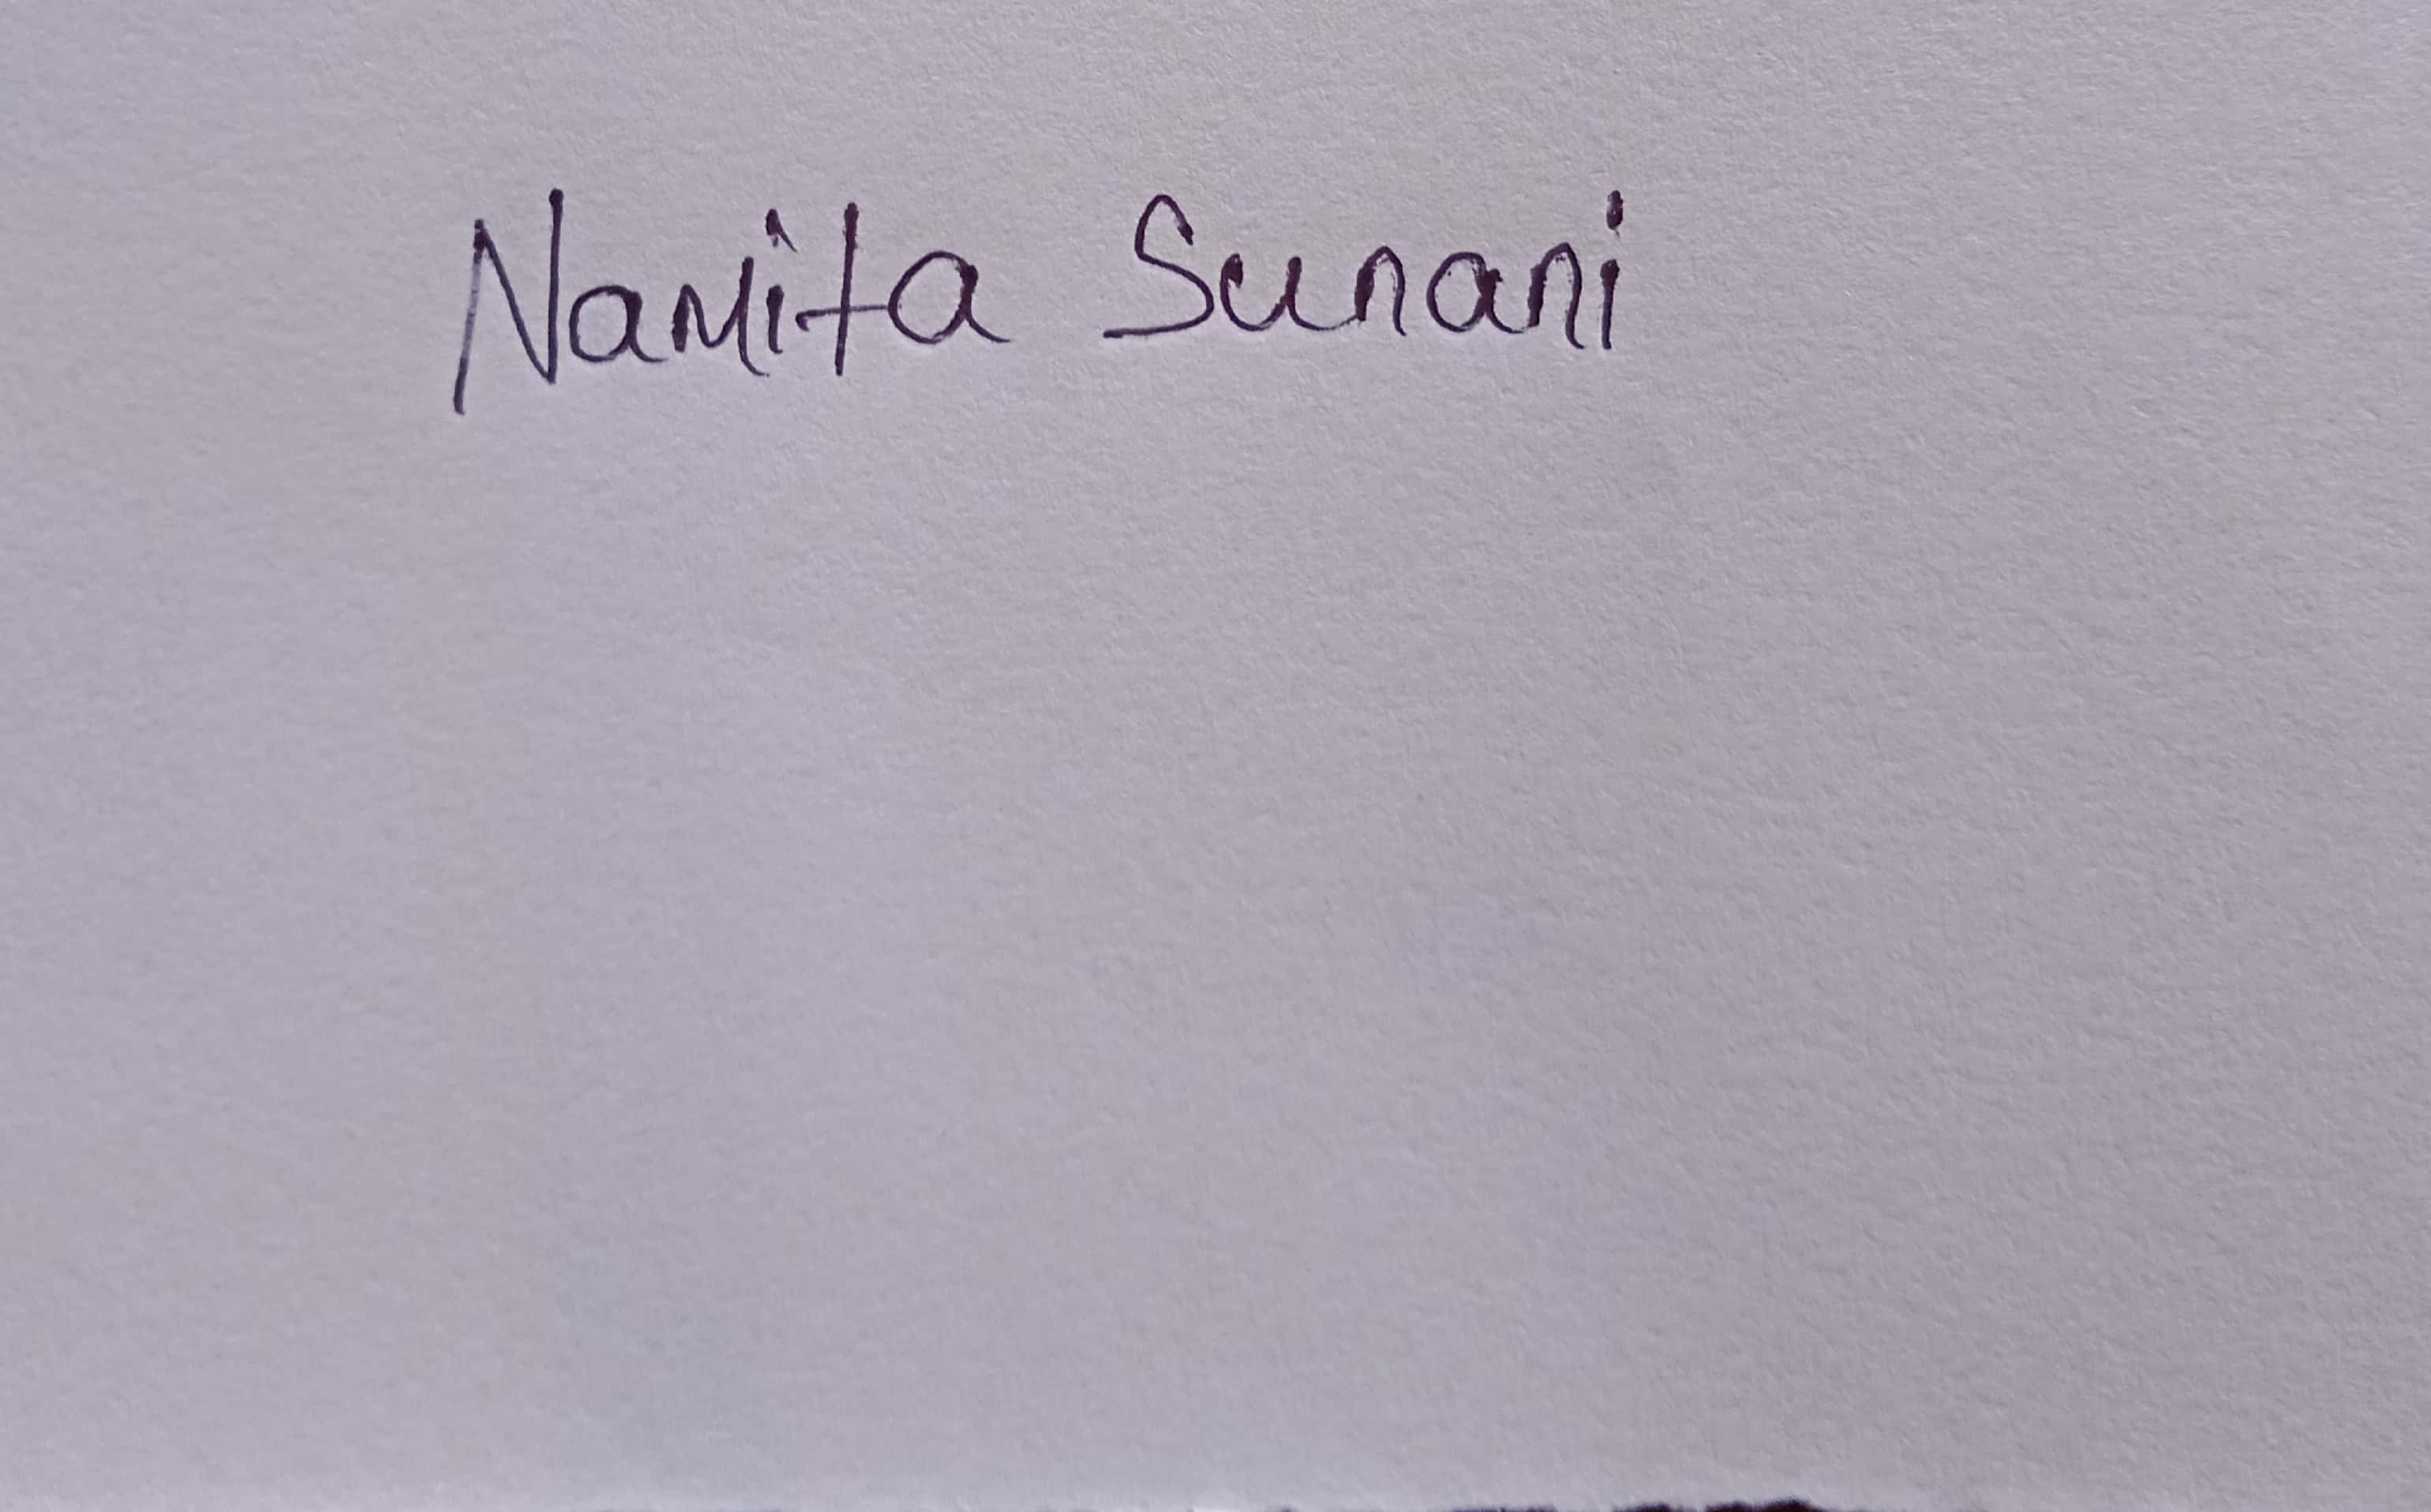 Namita Sunani